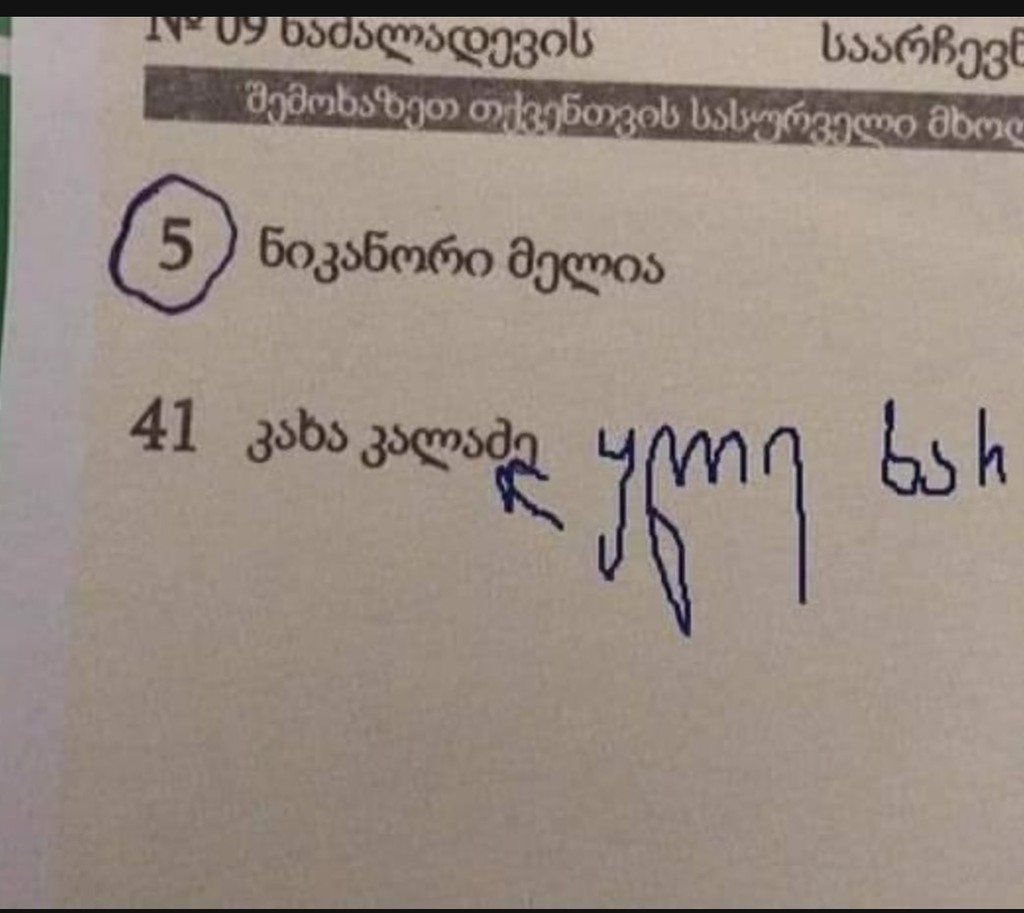 № 09 ნაძალადევის საარჩევნ
შემოხაზეთ თქვენთვის სასურველი მხოლ
5 ნიკანორი მელია
41 კახა კალაძე ყლე ხარ